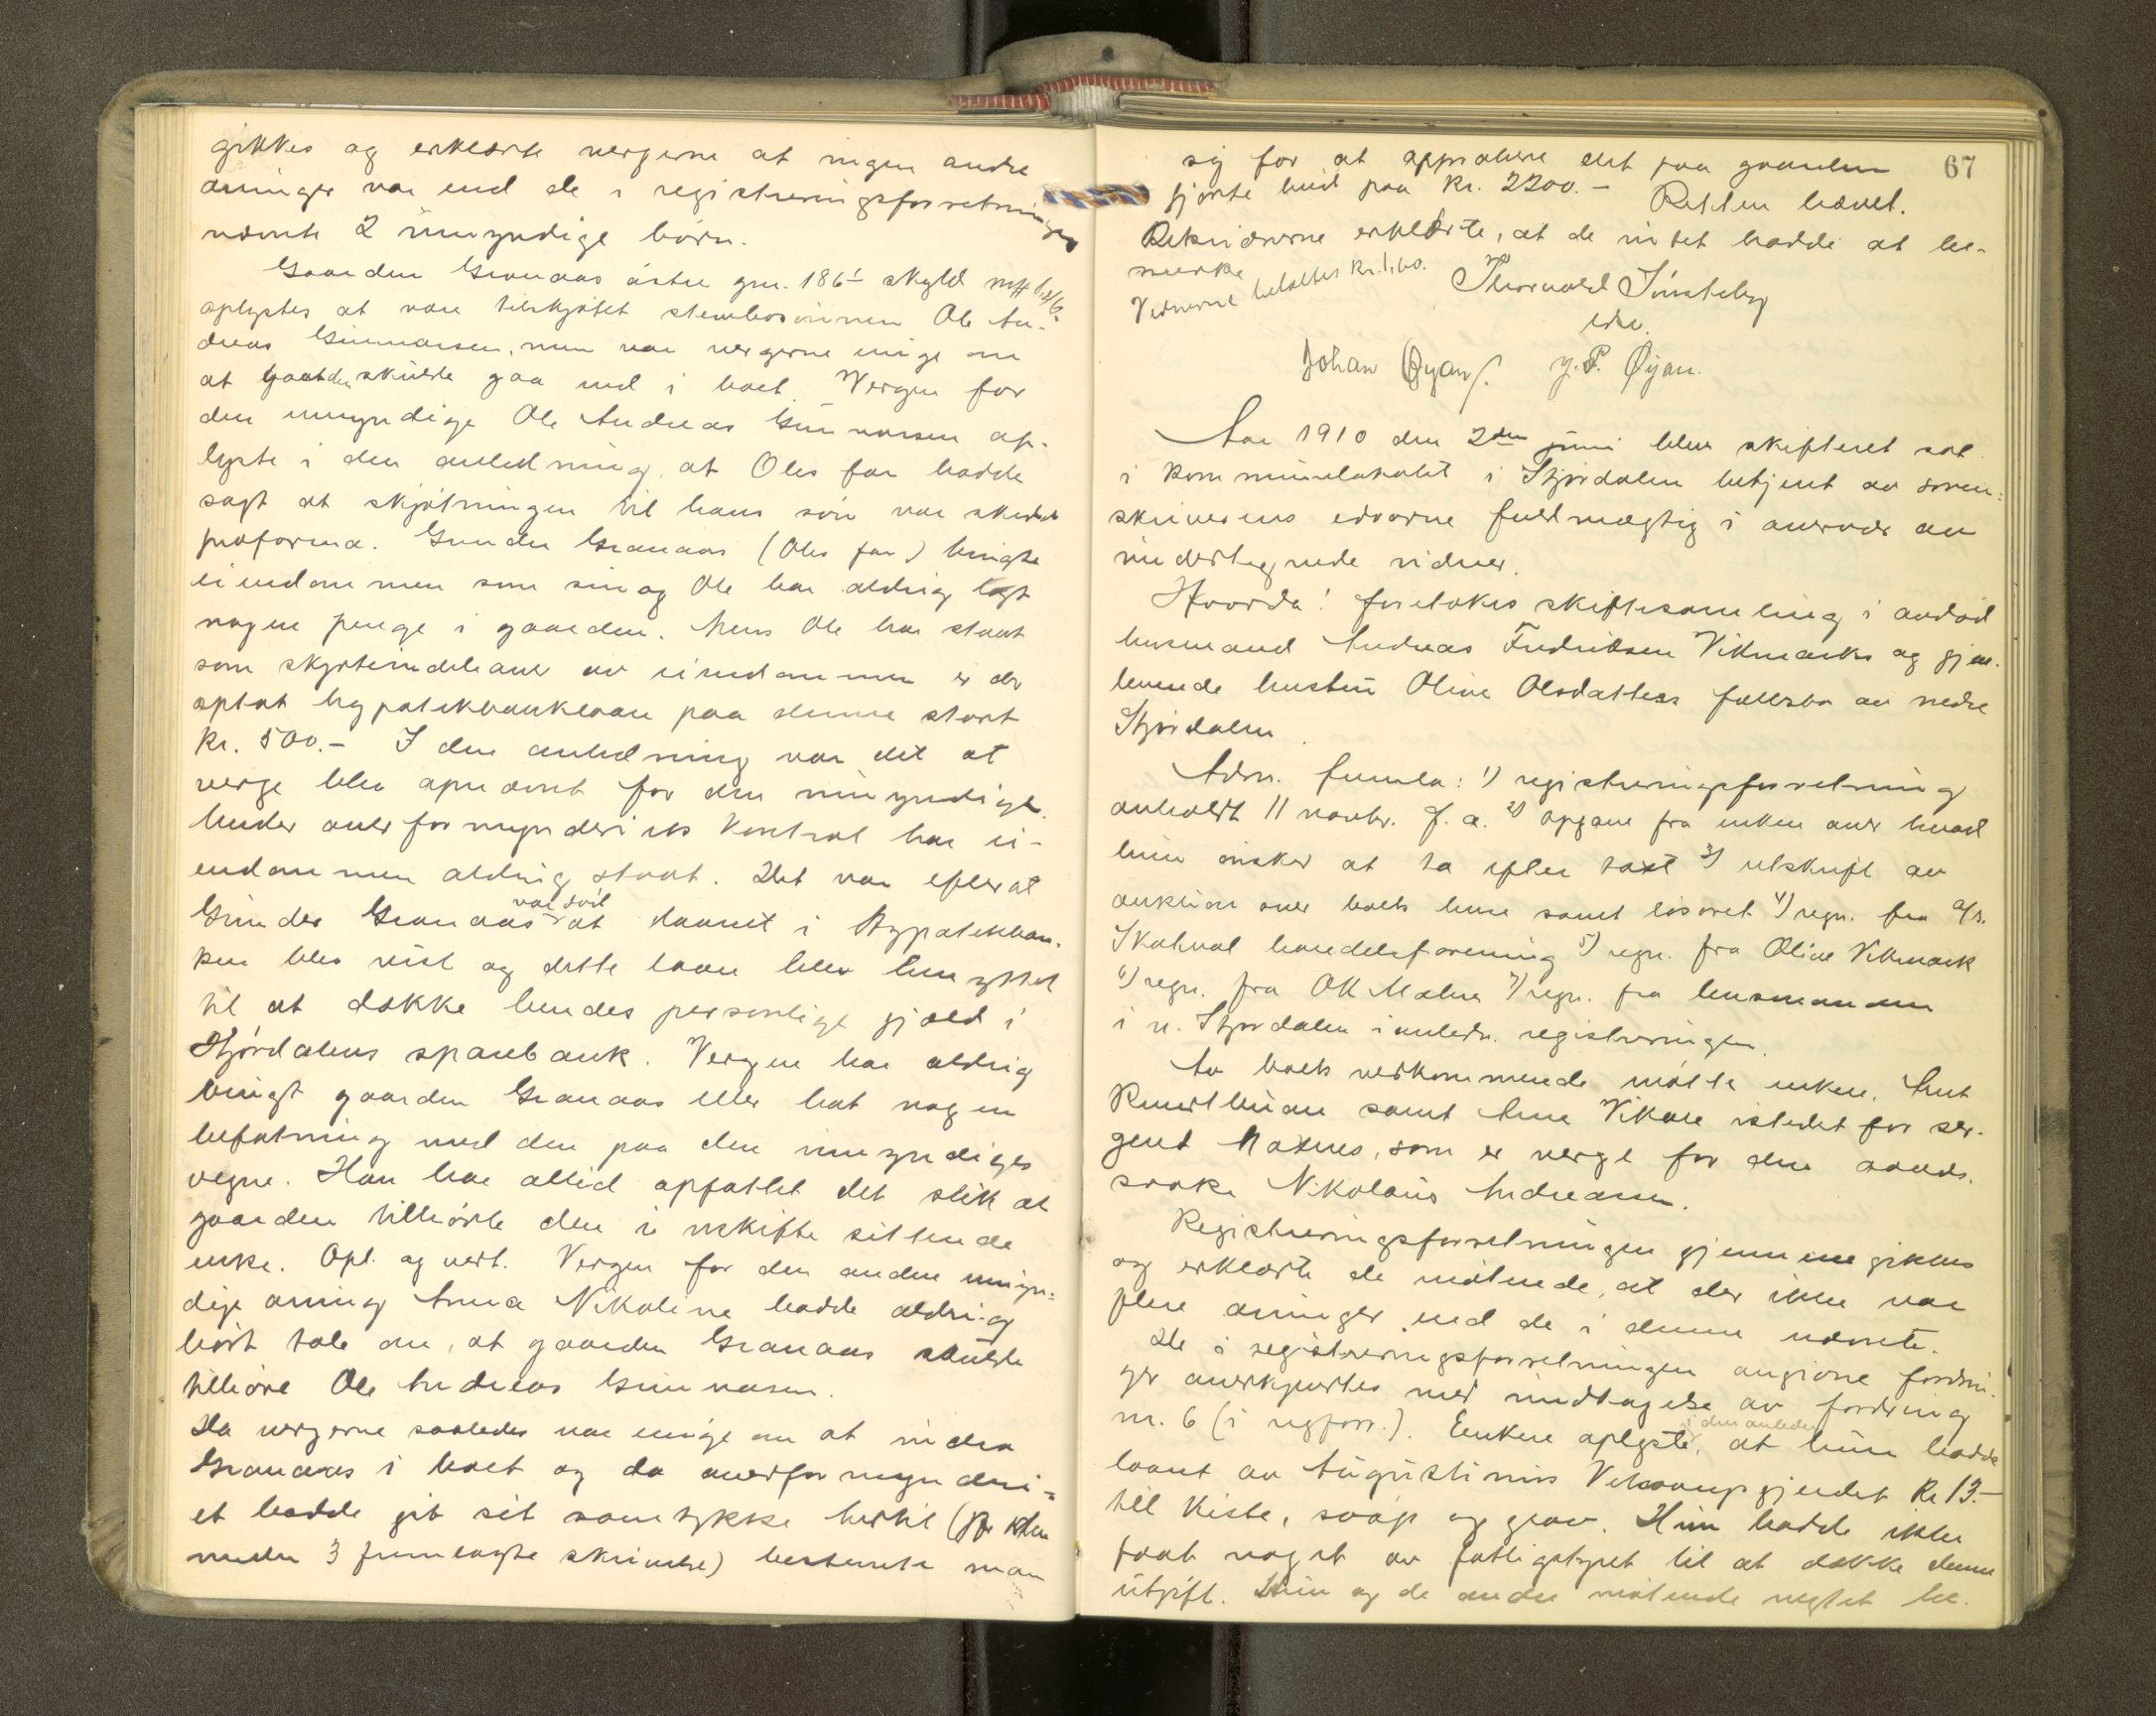 gikkes og erklærte vergerne at ingen andre
arvinger var end de i registreringsforretningen
nævnte 2 umyndige børn.
Gaarden Granaas østre gnr. 186/1 skyld
oplystes at være tilskjøtet stervbosønnen Ole An-
dreas Gunnarsen, men var vergerne enige om
at gaarden skulde gaa ind i boet. Vergen for
den umyndige Ole Andreas Gunnarsen op-
lyste i den anledning, at Oles far hadde
sagt at skjøtningen til hans søn var skedd
proforma. Gunder Granaas (Oles far) brugte
eiendommen som sin og Ole har aldrig lagt
nogen penge i gaarden. Mens Ole har staat
som skjøteindehaver av eiendommen er der
optat hypotekbanklaan paa denne stort
kr. 500.- I den anledning var det at
verge blev opnævnt for den umyndige.
Under overformynderiets kontrol har ei-
endommen aldrig staat. Det var efterat
Gunder Granaas var død at laanet i Hypotekban-
ken blev reist og dette laan blev benyttet
til at dække hendes personlige gjæld i
Stjørdalens sparebank. Vergen har aldrig
brugt gaarden Granaas eller hat nogen
befatning med den paa den umyndiges
vegne. Han har altid opfattet det slik at
gaarden tilhørte den i uskifte sittende
enke. Opl. og vert. Vergen for den anden umyn-
dige arving Anna Nikoline hadde aldrig
hørt tale om, at gaarden Granaas skulde
tilhøre Ole Andreas Gunnarsen.
Da vergerne saaledes var enige om at inddra
Granaas i boet og da overformynderi-
et hadde git sit samtykke hertil (jfr den
under 3 fremlagte skrivelse) bestemte man
67
sig for at approbere det paa gaarden
gjorte bud paa kr. 2200.- Retten hævet.
Rekvirerne erklærte, at de intet hadde at be-
merke
Vidnerne betaltes kr. 1,60. Thorvald Tønseby
edsv.
Johan Øyan. J. P. Øyan.
Aar 1910 den 2den juni blev skifteret sat
i kommunelokalet i Stjørdalen betjent av soren-
skriverens edsvorne fuldmægtig i overvær av
undertegnede vidner.
Hvorda! foretokes skiftesamling i avdød
husmand Andreas Fredriksen Vikmarks og gjen-
levende hustru Oline Olsdatters fællesbo av nedre
Stjørdalen.
Adm. fremla: 1) registreringsforretning
avholdt 11 novbr. f. a. 2) opgave fra enken over hvad
hun ønsker at ta efter taxt 3) utskrift av
auktion over boets hus samt løsøret 4) regn. fra a/s.
Skatval handelsforening 5) regn. fra Oline Vikmark
6) regn. fra OK Mæhre 7) regn. fra lensmanden
i n. Stjørdalen i anledn. registreringen.
Av boets vedkommende møtte enken. Arnt
samt Arne Vikan istedet for ser-
gent som er verge for den aands-
svake Nikolaus Andreassen.
Registreringsforretningen gjennemgikkes
og erklærte de møtende, at der ikke var
flere arvinger end de i denne nævnte.
De i registreringsforretningen angivne fordrin-
ger anerkjendtes med undtagelse av fordring
nr. 6 (i regforr.). Enken oplyste i den anledn. at hun hadde
laant av Augustinus kr 13.-
til kiste, svøp og grav. Hun hadde ikke
faat noget av fattigstyret til at dække denne
utgift. Hun og de andre møtende negtet be-